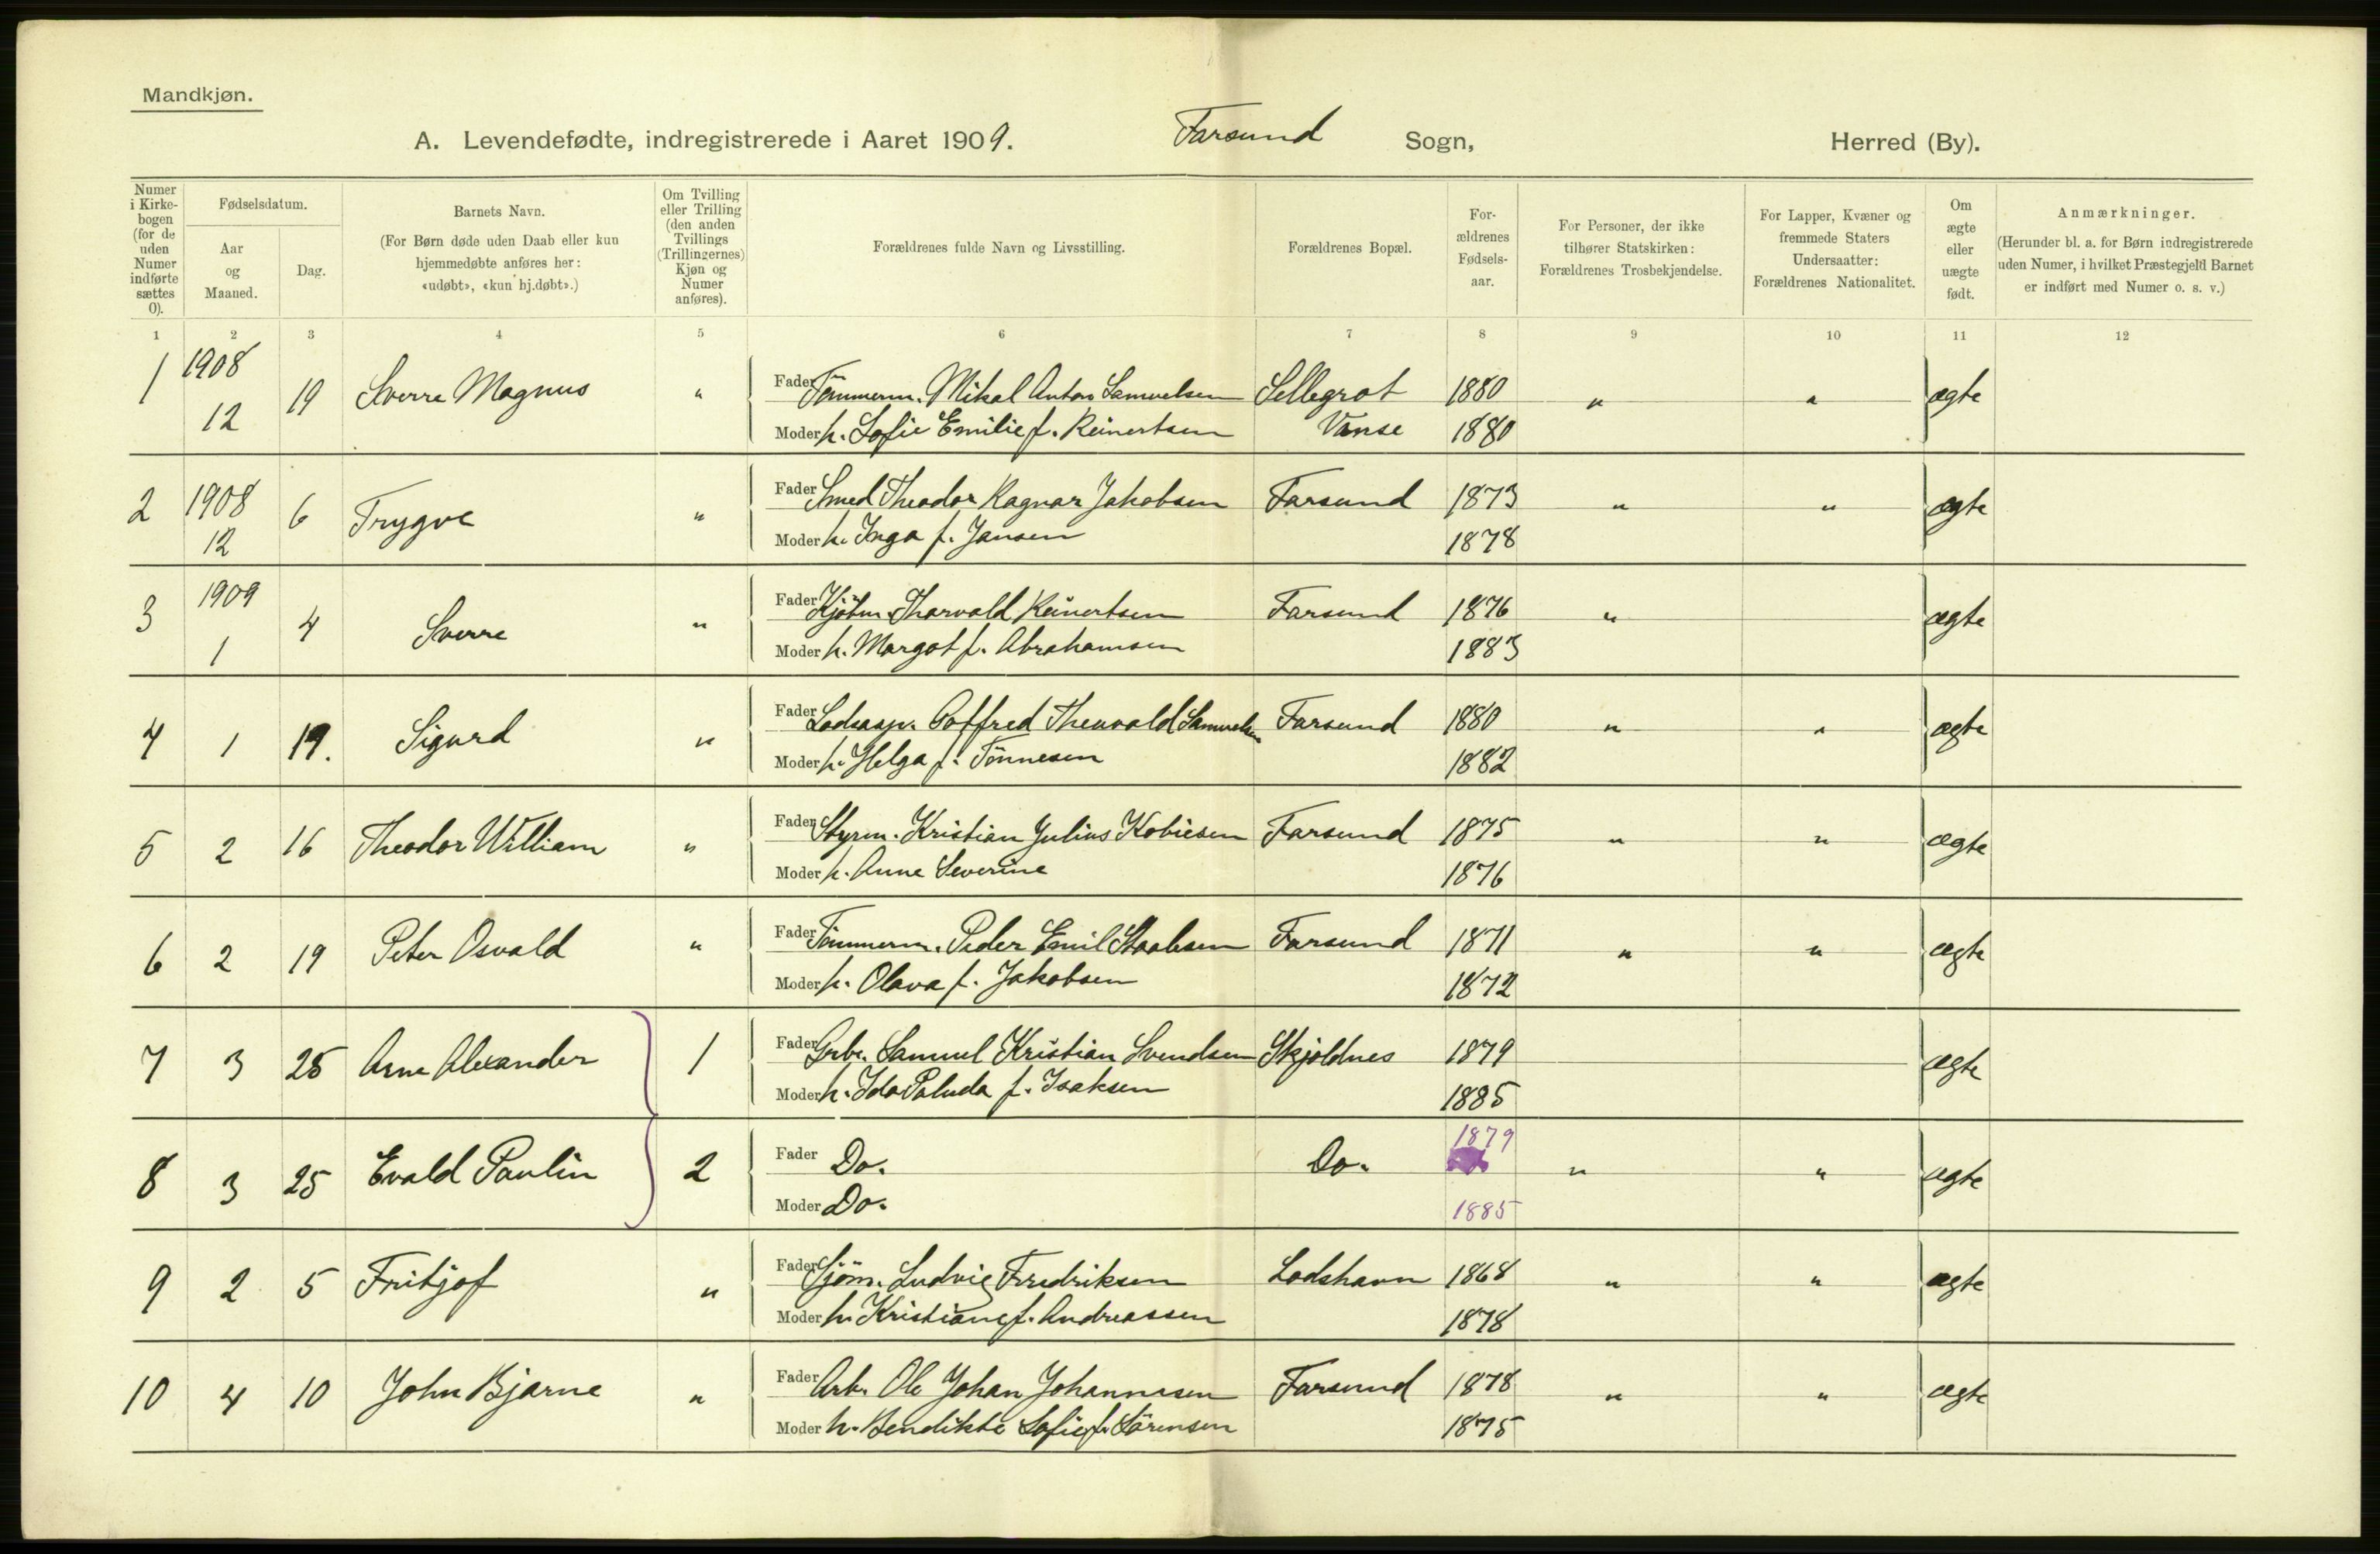 Mandkjøn.
A. Levendefødte, indregistrerede i Aaret 1909. Farsund Sogn, Herred (By).
Numer i Kirkebogen (for de uden Numer indførte sættes 0).
Fødselsdatum.
Aar og Maaned.
Dag.
Barnets Navn.
(For Børn døde uden Daab eller kun hjemmedøbte anføres her: «udøbt», «kun hj.døbt».)
Om Tvilling eller Trilling (den anden Tvillings (Trillingernes) Kjøn og Numer anføres).
Forældrenes fulde Navn og Livsstilling.
Forældrenes Bopæl.
For-ældrenes Fødsels-aar.
For Personer, der ikke tilhører Statskirken: Forældrenes Trosbekjendelse.
For Lapper, Kvæner og fremmede Staters Undersaatter: Forældrenes Nationalitet.
Om ægte eller uægte født.
Anmærkninger.
(Herunder bl. a. for Børn indregistrerede uden Numer, i hvilket Præstegjeld Barnet er indført med Numer o. s. v.)
1 2 3 4 5 6 7 8 9 10 11 12
1 1908 12 19 Sverre Magnus " Fader Tömmerm. Mikal Anton Samuelsen Sellegrot 1880 " " ægte
Moder h. Sofie Emilie f. Reinertsen Vanse 1880
2 1908 12 6 Trygve " Fader Smed Theodor Ragnar Jakobsen Farsund 1873 " " ægte
Moder h. Inga f. Jansen 1878
3 1909 1 4 Sverre " Fader Kjöbm. Thorvald Reinertsen Farsund 1876 " ægte
Moder h. Margot f. Abrahamsen 1883
4 1 19. Sigurd " Fader Lodsasp. Gotfred Theuvald Samuelsen Farsund 1880 " " ægte
Moder h. Helga f. Tönnesen 1882
5 2 16 Theodor William " Fader Styrm. Kristian Julius Kobiesen Farsund 1875 " " ægte
Moder h. Anne Severine 1876
6 2 19 Peter Osvald " Fader Tömmerm. Peder Emil Staalesen Farsund 1871 " " ægte
Moder h. Olava f. Jakobsen 1872
7 3 25 Arne Alexander 1 Fader Grbr. Samuel Kristian Svendsen Skjoldnes 1879 ægte
Moder h. Ida Paluda f. Isaksen 1885
8 3 25 Evald Paulin 2 Fader Do. Do. 1879 " " ægte
Moder Do. 1885
9 2 5 Fritjof " Fader Sjöm. Ludvig Fredriksen Lodshavn 1868 " " ægte
Moder h. Kristiane f. Andreassen 1878
10 4 10 John Bjarne " Fader Arb. Ole Johan Johannesen Farsund 1878 " " ægte
Moder h. Bendikte Sofie f. Sörensen 1875